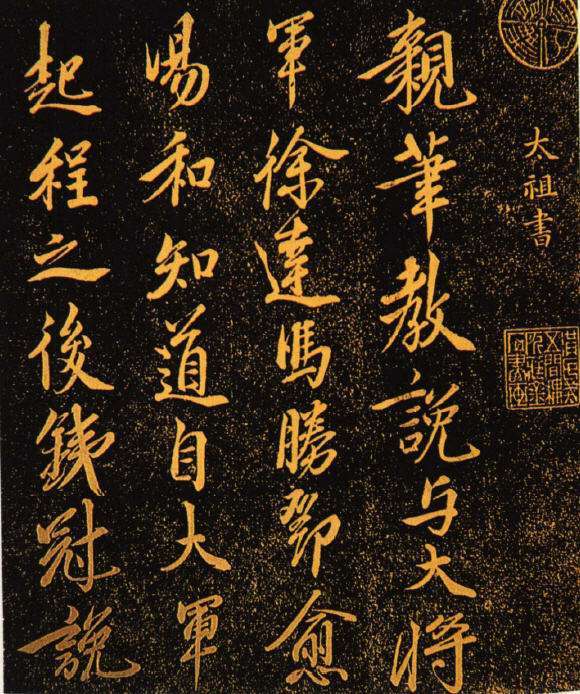 太祖書
親筆教說与大將
軍徐達馮勝鄧愈
湯和知道自大軍
起程之後鐵冠說